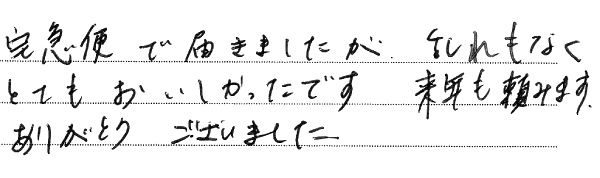 宅急便で届きましたが、乱れもなく
とてもおいしかったです 来年も頼みます。
ありがとうございました